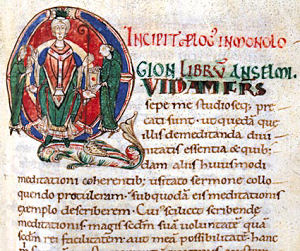 INCIPIT PLOG' IN MONOLO
GION LIBRU ANSELMI.
QUIDAM FRS
sepe me studioseq; pre
cati sunt. ut quedã que
illis de meditanda diui
nitatis essentia & quib;
dam aliis huius modi
meditationi coherentib; usitato sermone collo
quendo protuleram. sub quodã eis meditationis
exemplo describerem. Cui' scilicet scribende
meditationis magis sedm̃ suã uoluntatẽ quã
sedm̃ rei facilitatem aut meã possibilitatẽ hanc